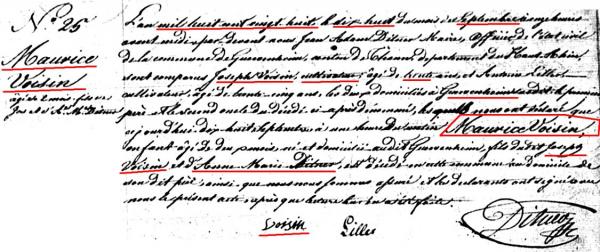 N.° 25
Maurice
Voisin
âgé de 2 mois, fils de
Jos. et A. M. Ditner
L'an mil huit cent vingt huit, le dix huit du mois de Septembre à onze heures
avant midi par devant nous Jean Ditner Maire, Officier de l'état civil
de la commune de Guevenheim, canton de Thann, département du Haut Rhin,
sont comparus Joseph Voisin, cultivateur, âgé de trente ans et Antoine Liller
cultivateur, âgé de trente cinq ans, les deux domiciliés à Guevenheim, le premier
père et le second oncle du décédé ci après dénommé, lesquels nous ont déclaré que
aujourd'hui dix huit Septembre à une heure du matin Maurice Voisin
enfant âgé de deux mois, né et domicilié audit Guevenheim, fils dudit Joseph
Voisin et d'Anne Marie Ditner, est décédé en cette commune au domicile de
son dit père, ainsi que nous nous sommes assuré et les déclarants ont signé avec
nous le présent acte, après que lecture leur en a été faite.
Voisin Liller
Ditner